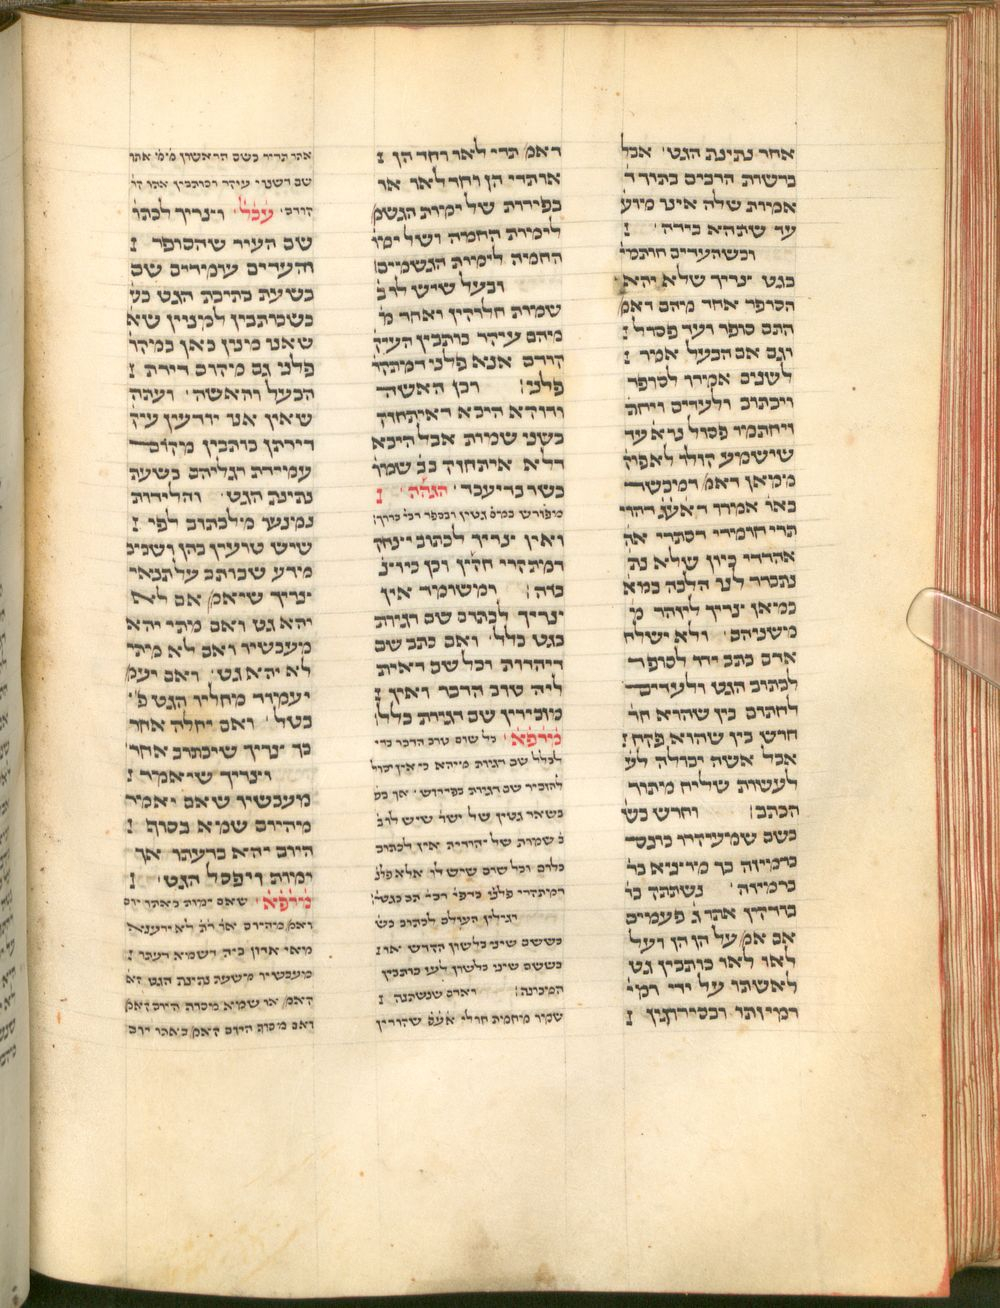 אחר נתינת הגט׳ אבל
ברשות הרבים בתוך ד׳
אמות שלה אינו מוע׳
עד שתהא בידה׳
וכשהעדים חותמי׳
בגט צריך שלא יהא
הסופר אחד מיהם דאמ׳
התם סופר ועד פסול
וגם אם הבעל אמר
לשנים אמרו לסופר
ויכתוב ולעדים ויחת׳
ויחתמו פסול נרא׳ עד
שישמע קולו לאפוקי
ממאן דאמ׳ דמיכשר
באו׳ אמרו דאע״ג דהוי
תרי חומרי דסתרי אה׳
אהדדי כיון שלא נת׳
נתברר לנו הלכה כמא׳
כמאן צריך ליזהר מ׳
משניהם׳ ולא ישלח
אדם כתב ידו לסופר
לכתוב הגט ולעדים
לחתום בין שהוא חר׳
חרש בין שהוא פקח
אבל אשה יכולה לע׳
לעשות שליח מתוך
הכתב׳ וחרש כש׳
כשם שמעידין בכנס׳
ברמיזה כך מוציא בר׳
ברמיזה׳ נשתתק בו׳
בודקין אתו ג׳ פעמים
אם אמ׳ על הן הן ועל
לאו לאו כותבין גט
לאשתו על ידי רמי׳
רמיזתו ובסירוגין
דאמ׳ תרי לאו וחד הן
או תרי הן וחד לאו או
בפירות של ימות הגשמ׳
לימות החמה ושל ימו׳
החמה לימות הגשמים׳
ובעל שיש לו ב׳
שמות חלוקין ואחד מ׳
מיהם עיקר כותבין העיק׳
קודם אנא פלני דמתקרי
פלני׳ וכן האשה
ודוקא היכא דאיתחזק
בשני שמות אבל היכא
דלא איתחזק בב׳ שמו׳
כשר בדיעבד׳ הגהה׳
מפורש במס׳ גטין ובספר רבי׳ ברוך׳
ואין צריך לכתוב יצחק
דמתקרי חקין וכן כיוצ׳
בזה׳ ומשומד אין
צריך לכתוב שם דגיות
בגט כלל׳ ואם כתב שם
דיהדות וכל שם דאית
ליה טוב הדבר ואין
מזכירין שם דגיות כלל׳
מורפא׳ כל שום טוב הדבר כדי
לכלל שם דגיות מיהא כי אין יכול
להזכיר שם דגיות בפירוש׳ אך כש׳
בשאר גטין של ישר׳ שיש לו ב׳
ב׳ שמות של יהודית אין לכתוב
כלום וכל שום שיש לו אלא פלני׳
דמתקרי פלני׳ כדפי׳ רבי׳ תם בגט׳
רגילין העולם לכתוב כש׳
כששם שיני בלשון הקדש או
כששם שיני בלשון לעז כותבין
המכונה׳ ואדם שנשתנה
שמו מחמת חולי אע״פ שקורין
אתו תדיר בשם הראשון מ״מ אתו
שם דשנוי עיקר וכותבין אתו ק׳
קודם׳ עכל׳ וצריך לכתו׳
שם העיר שהסופר
והעדים עומדים שם
בשעת כתיבת הגט כש׳
כשכותבין למניין שא׳
שאנו מנין כאן במקו׳
פלני גם מקום דירת
הבעל והאשה׳ ועתה
שאין אנו יודעין עיק׳
דירתן כותבין מקום
עמידת רגליהם בשעת
נתינת הגט׳ והלידות
נמנעו מלכתוב לפי
שיש טועין בהן ושכ״מ
מרע שכותב על תנאי
צריך שיאמ׳ אם לא
יהא גט ואם מתי יהא
מעכשיו ואם לא מתי
לא יהא גט׳ ואם יעמ׳
יעמוד מחליו הגט פ׳
בטל׳ ואם יחלה אחר
כך צריך שיכתוב אחר׳
וצריך שיאמר
מעכשיו שאם יאמר
מהיום שמא בסוף
היום יהא בדעתו אך
ימות ויפסל הגט׳
מורפא׳ שאם ימות באתו יום
ואמ׳ מהיום אז דת לא ידענא
מאי אידון ביה דשמא דעבד
מעכשיו משעת נתינת הגט קא
קאמ׳ או שמא מיסוף היום קאמ׳
ואם מסוף היום קאמ׳ באתו יום